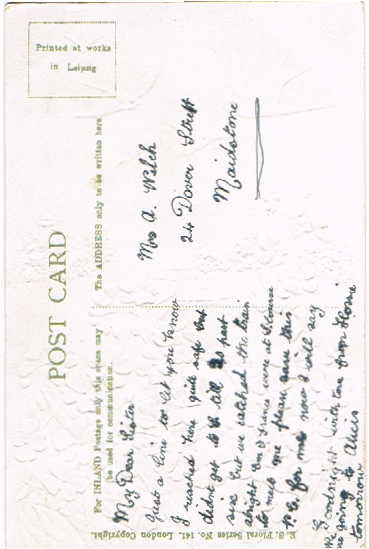 POST CARD
Printed at works
in Leipzig
For INLAND Postage only this space may
be used for communication.
The ADDRESS only to be written here.
My Dear Sister
Just a line to let you know
I reached here quite safe but
didnt get to till past
six but we catched the train
alright and France were at
to meet me please save this
P.C. for me now I will say
Goodnight with love from
We are going to Alices
tomorrow
Mrs A. Welch
24 Dover Street
Maidstone
E.S. Floral Series No. 141. London Copyright.